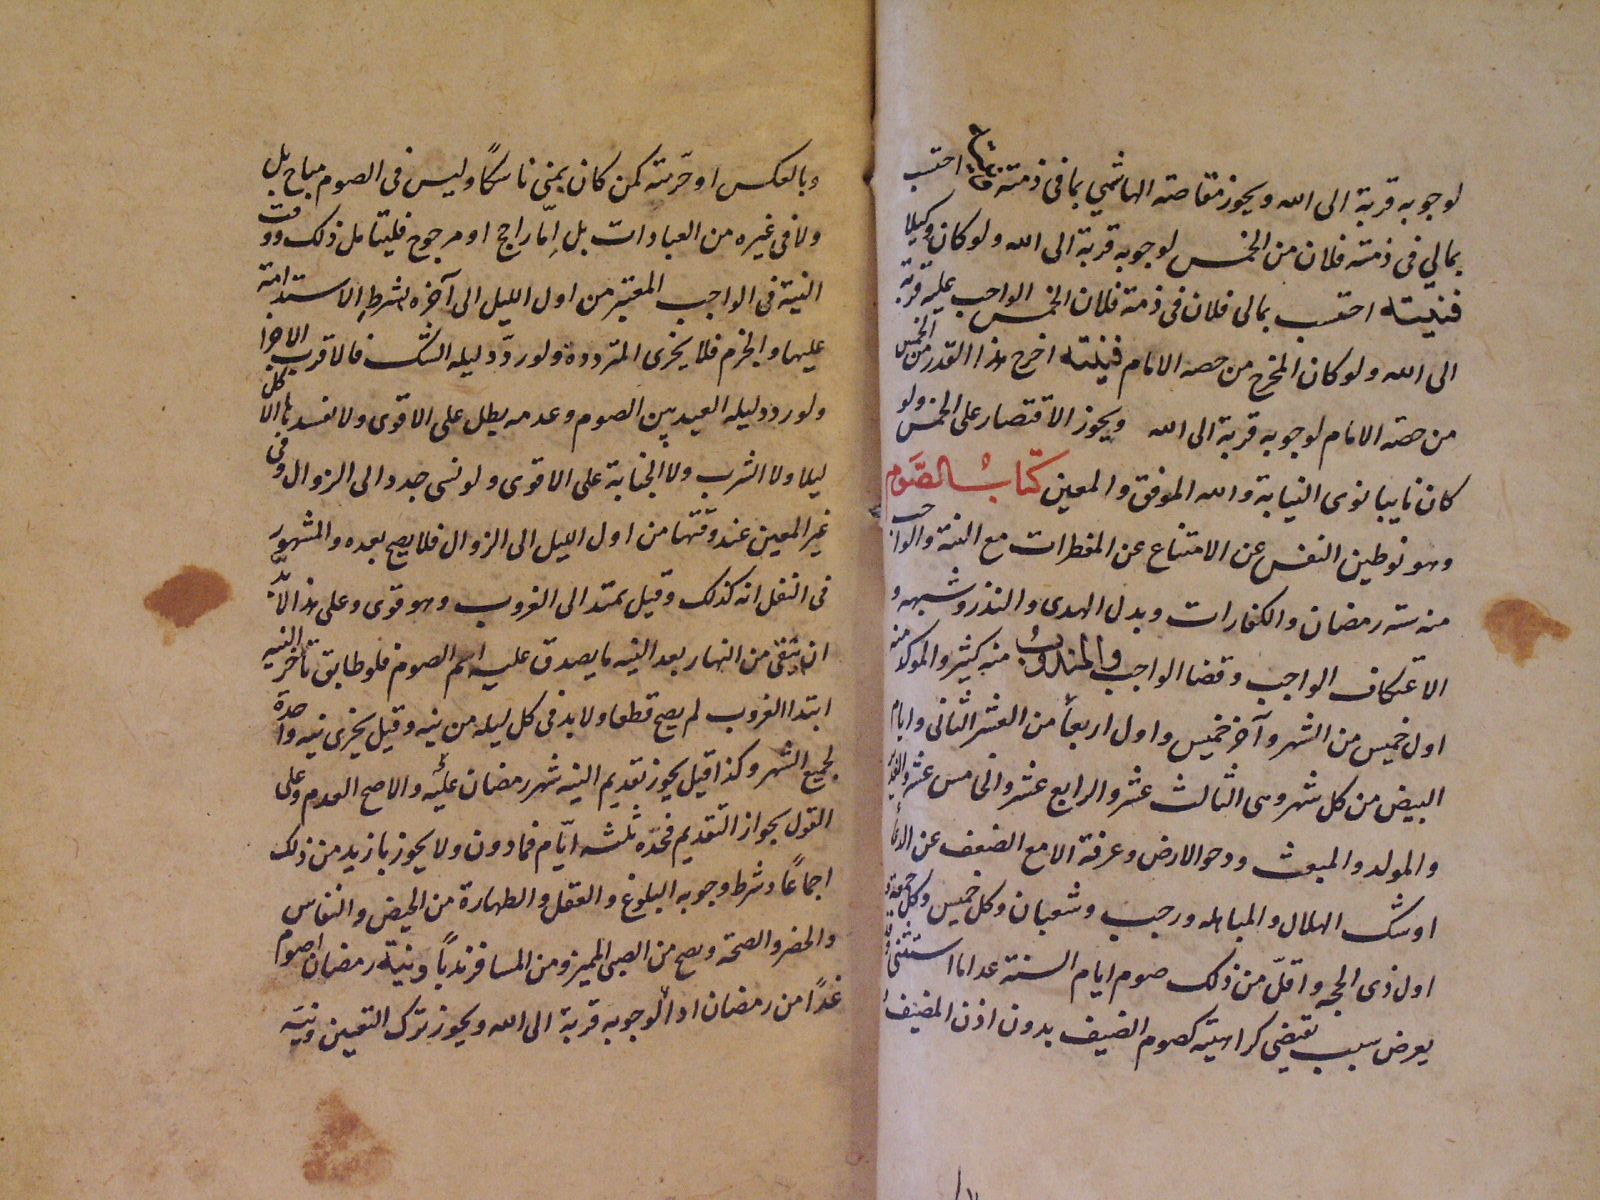 لوجوبه قربة الى الله ويجوز مقاصته الهاشمي بما فى ذمته احتسب
بمالي فى ذمته فلان من الخمس لوجوبه قربة الى الله ولو كان وكيلا
فنيته احتسب بمالى فلان فى ذمة فلان الخمس الواجب عليه قربة
الى الله ولو كان المخرج من حصه الامام فنيته اخرج هذا القدر من الخمس
من حصه الامام لوجوبه قربة الى الله ويجوز الاقتصار على الخمس ولو
كان نايبا نوى النيابة والله الموفق والمعين كتاب الصَّوم
وهو توطين النفس عن الامتناع عن المفطرات مع النية والواجب
منه ستة رمضان والكفارات وبدل الهدى والنذر وشبهه و
الاعتكاف الواجب وقضا الواجب والمندوب منه كثير والموكد منه
اول خميس من الشهر وآخر خميس واول اربعا من العشر الثانى وايام
البيض من كل شهر وهى الثالث عشر والرابع عشر والخامس عشر والغدير
والمولد والمبعث ودحو الارض وعرفة الا مع الضعف عن الدعا
او شك الهلال والمباهله ورجب وشعبان وكل خميس وكل جمعة و
اول ذى الحجه واقلّ من ذلك صوم ايام السنة عدا ما استثنى وقد
يعرض سبب يقتضى كراهيته كصوم الضيف بدون اذن المضيف
وبالعكس او حرّمته كمن كان بمنى ناسكًا وليس فى الصوم مباح بل
ولا فى غيره من العبادات بل اِمّا راجح او مرجوح فليتامل ذلك ووقت
النية فى الواجب المعتبر من اول الليل الى آخره بشرط الاستدامة
عليها والجزم فلا يجزى المتردده ولو ردّد ليله الشك فالاقرب الاجزا
ولو ردد ليله العيد بين الصوم وعدمه بطل على الاقوى ولا تفسدها الاكل
ليلا ولا الشرب ولا الجنابة على الاقوى ولو نسى جدد الى الزوال وفى
غير المعين عند وقتها من اول الليل الى الزوال فلا يصح بعده والمشهور
فى النفل انه كذلك وقيل يمتد الى الغروب وهو قوى وعلى هذا لابدّ
ان يبقى من النهار بعد النيه ما يصدق عليه اسم الصوم فلو طابق تاخر النيه
ابتدا الغروب لم يصح قطعا ولابد فى كل ليله من نيه وقيل يجزى نيه واحدة
لجميع الشهر وكذا قيل يجوز تقديم النيه شهر رمضان عليه والاصح العدم وعلى
القول بجواز التقديم فحدّه ثلثه ايّام فما دون ولا يجوز بازيد من ذلك
اجماعًا وشرط وجوبه البلوغ والعقل والطهارة من الحيض والنفاس
والحضر والصحة ويصح من الصبى المميز ومن المسافر ندبًا ونية رمضان اصوم
غدًا من رمضان ادآ لوجوبه قربة الى الله ويجوز ترك التعين ونيّه